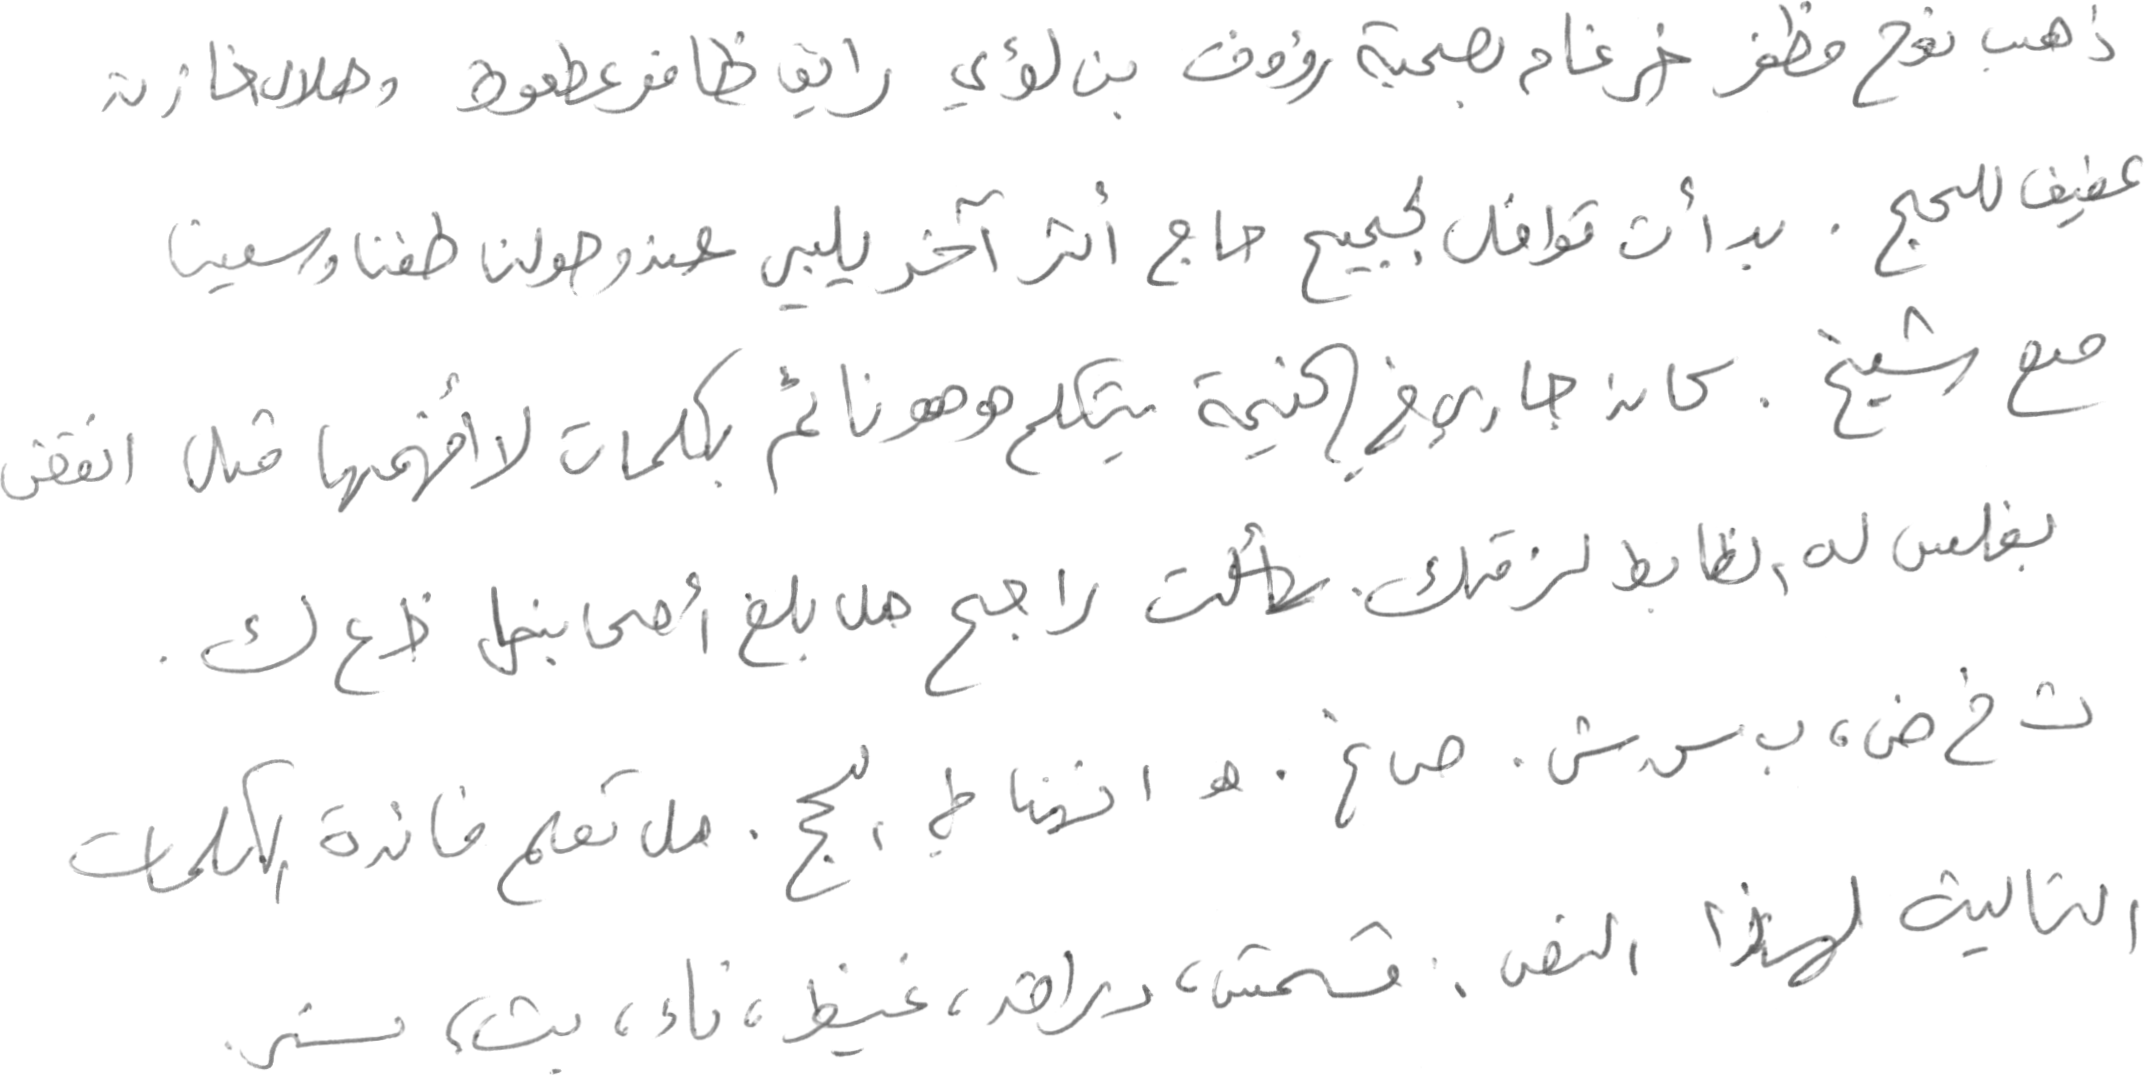 ذهب نوح مظفر ضرغام بصحبة رؤوف بن لؤي رايق ظافر عطعوط وهلال خازن
عفيف للحج . بدأت قوافل لحجيج حاج أثر آخر يلبي عند وصولنا طفنا وسعينا
مع شيخ . كان جاري في الخيمة يتكلم وهو نائم بكلمات لا أفهمها مثل انفقض
بغلس له الظابط لزقتك . سألت راجح هل بلغ أصحا بنخل ظ ع ك .
ث خ ض ، ب س ش . ص غ . ه انضباط الحج . هل تعلم فائدة الكلمات
التالية لهذا النص . قسمتش ، دراقه ، غيظ ، ناء ، بث ، ستر .